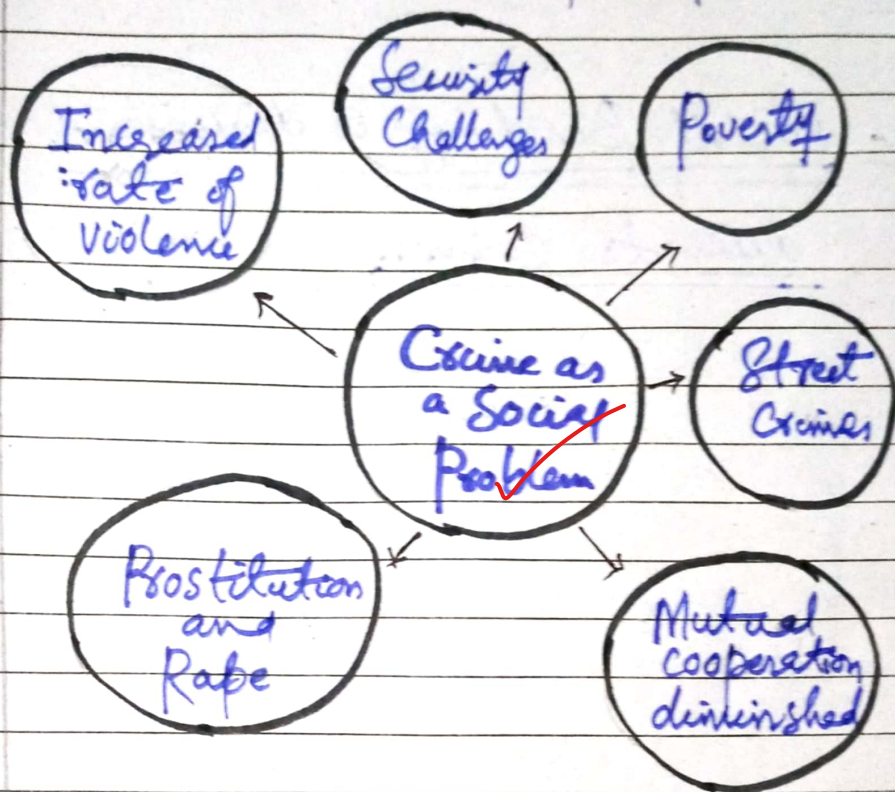 Increased
rate of
violence
Security
Challenges
Poverty
Crime as
a Social
Problem
Street
Crimes
Prostitution
and
Rape
Mutual
cooperation
diminished